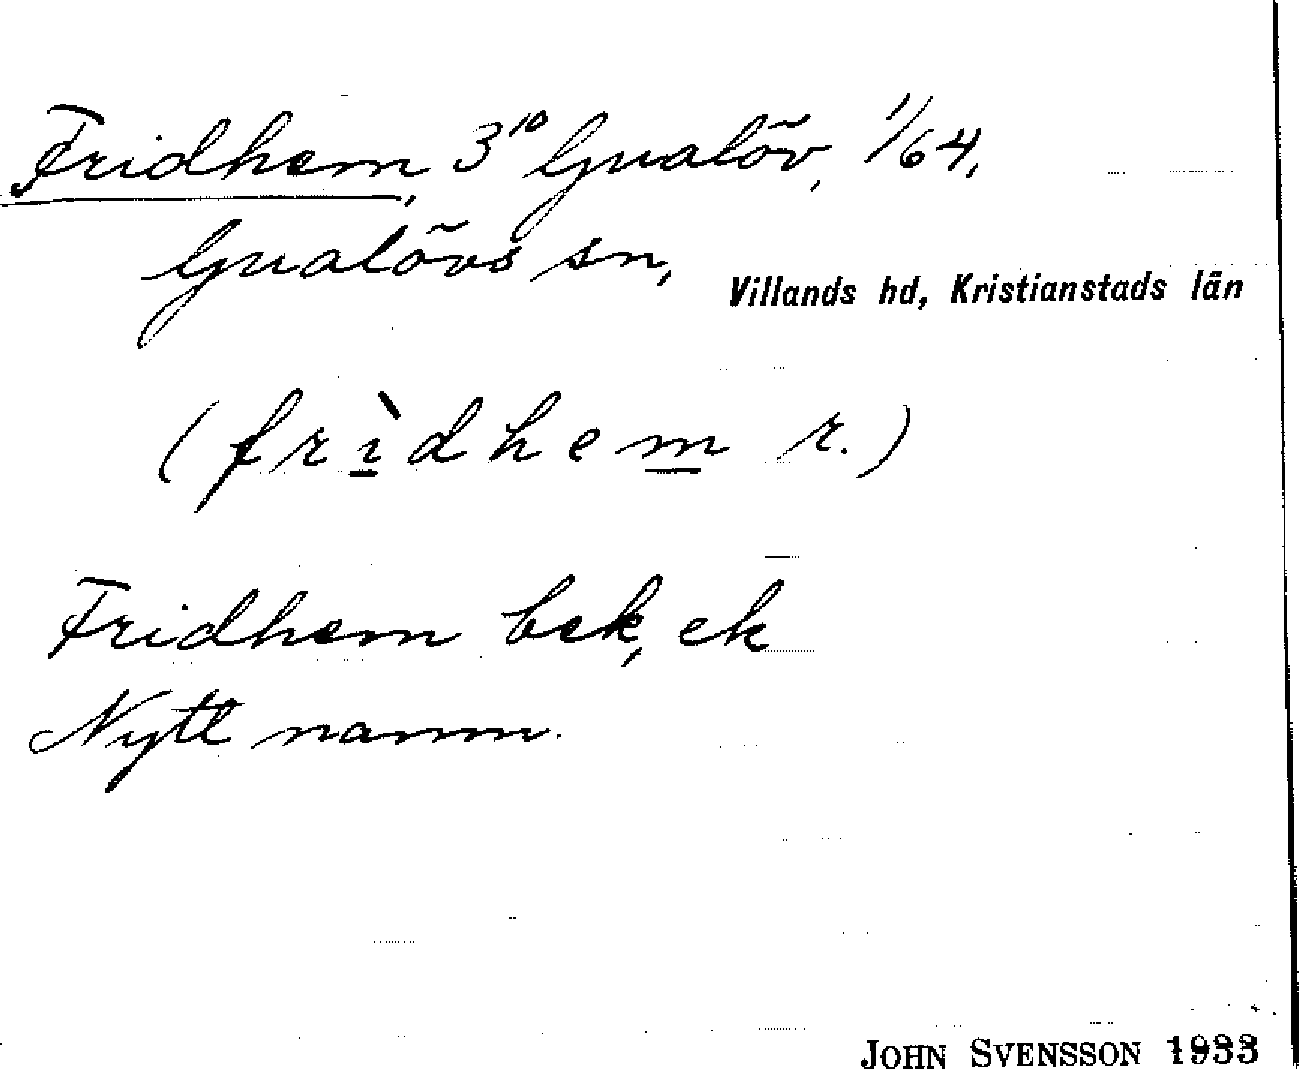 Fridhem, 3¹⁰ Gualöv, 1/64,
Gualövs sn,
Villands hd, Kristianstads län
(frìdhem r.)
Fridhem bek, ek
Nytt namn.
JOHN SVENSSON 1933